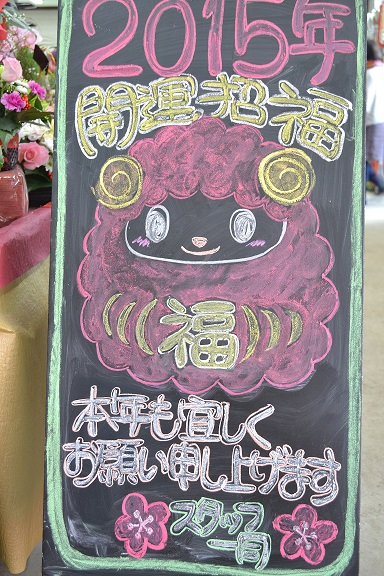 2015年
開運招福
福
本年も宜しく
お願い申し上げます
スタッフ
一同